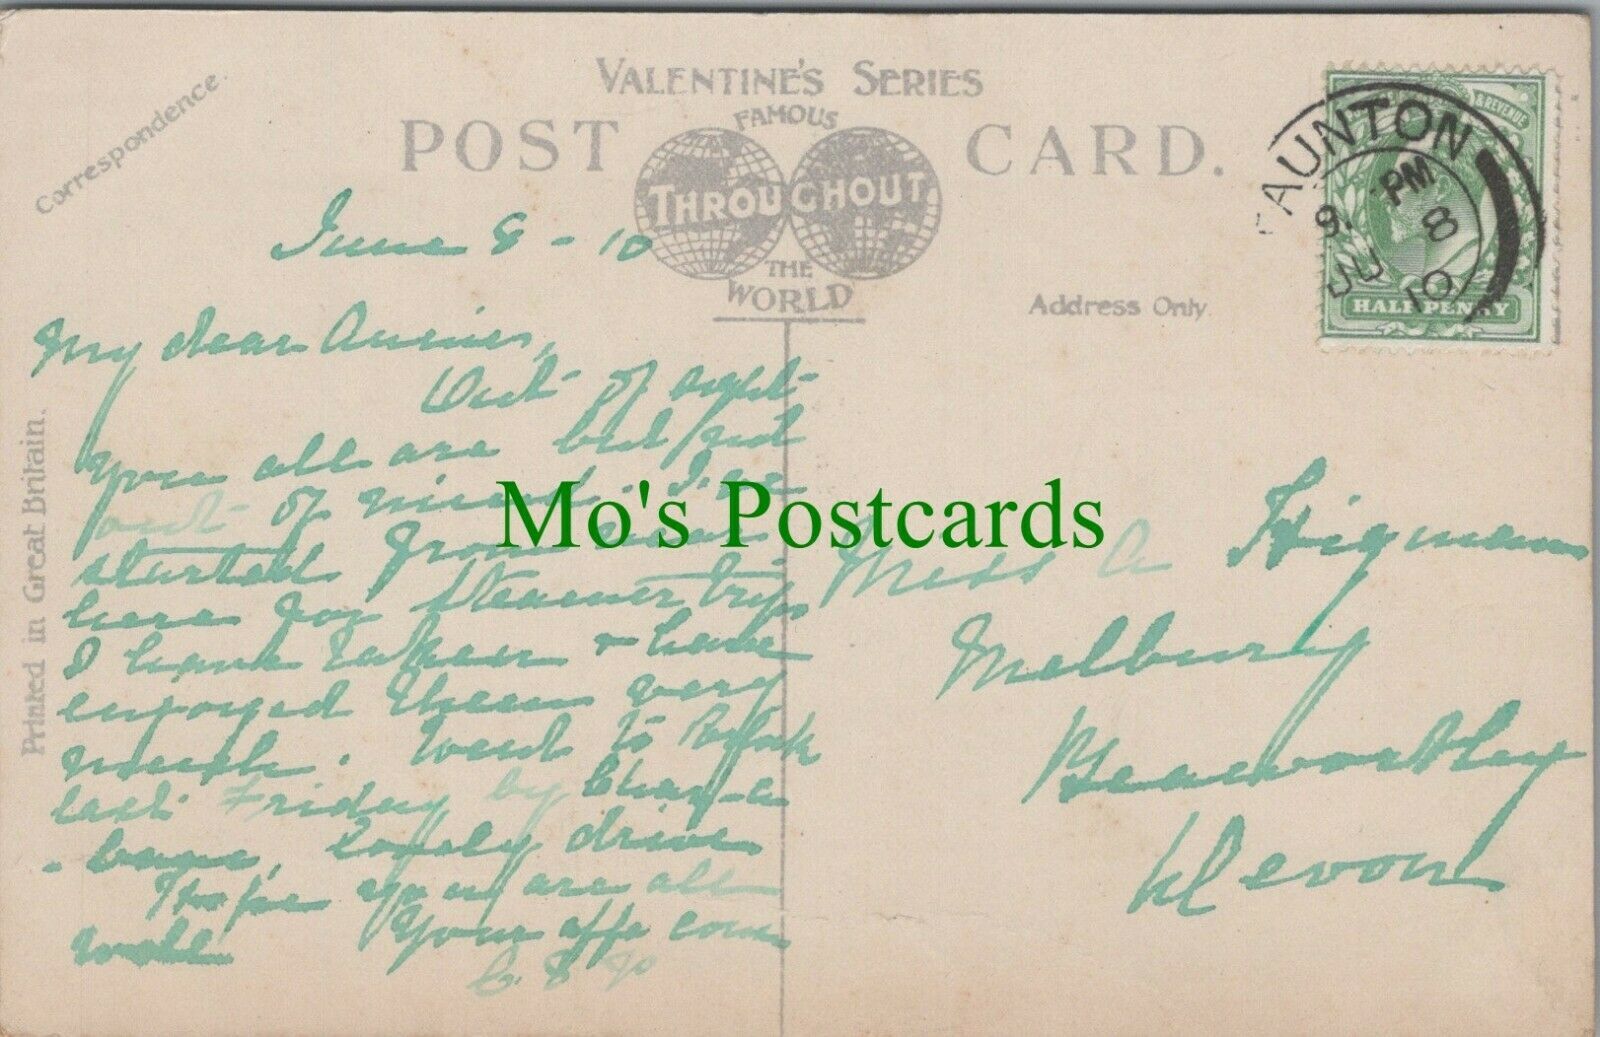 Correspondence.
VALENTINE'S SERIES
FAMOUS
POST CARD.
THROUGHOUT
THE
WORLD
Address Only.
Printed in Great Britain.
TAUNTON
PM
8
JU
10
& REVENUE
HALF PENNY
June 8 - 10
My dear
Out of sight
you all are but not
out of mind.
started from
here for steamer trips
I have taken & have
enjoyed them very
much. Went to
last Friday by Char-a
- banc, lovely drive
Hope you are all
well Your affe
Mo's Postcards
Miss A Higman
Melbury
Beaworthy
N Devon